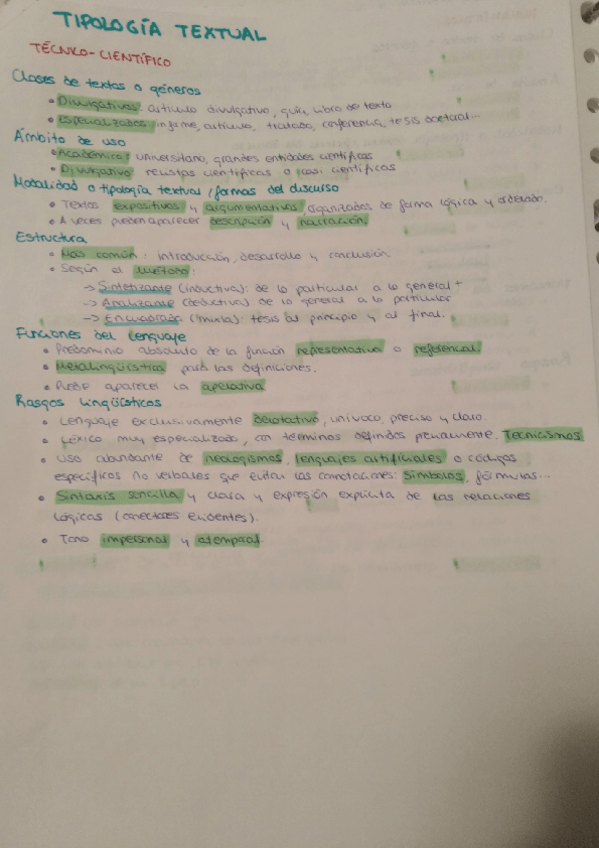 TIPOLOGÍA TEXTUAL
TÉCNICO-CIENTÍFICO
Clases de textos o géneros
• Divulgativos: artículo divulgativo, guía, libro de texto
• Especializados: informe, artículo, tratado, conferencia, tesis doctoral...
Ámbito de uso
• Académico: universitario, grandes entidades científicas
• Divulgativo: revistas científicas o casi científicas
Modalidad o tipología textual / formas del discurso
• Textos expositivos y argumentativos, organizados de forma lógica y ordenada.
• A veces pueden aparecer descripción y narración.
Estructura
• Más común: introducción, desarrollo y conclusión
• Según el método:
→ Sintetizante (inductiva): de lo particular a lo general
→ Analizante (deductiva): de lo general a lo particular
→ Encuadrada (mixta): tesis al principio y al final.
Funciones del lenguaje
• Predominio absoluto de la función representativa o referencial.
• Metalingüística para las definiciones.
• Puede aparecer la apelativa
Rasgos lingüísticos
• Lenguaje exclusivamente denotativo, unívoco, preciso y claro.
• Léxico muy especializado, con términos definidos previamente. Tecnicismos
• Uso abundante de neologismos, lenguajes artificiales o códigos
específicos no verbales que evitan las connotaciones: símbolos, fórmulas...
• Sintaxis sencilla y clara y expresión explícita de las relaciones
lógicas (conectores evidentes).
• Tono impersonal y atemporal.